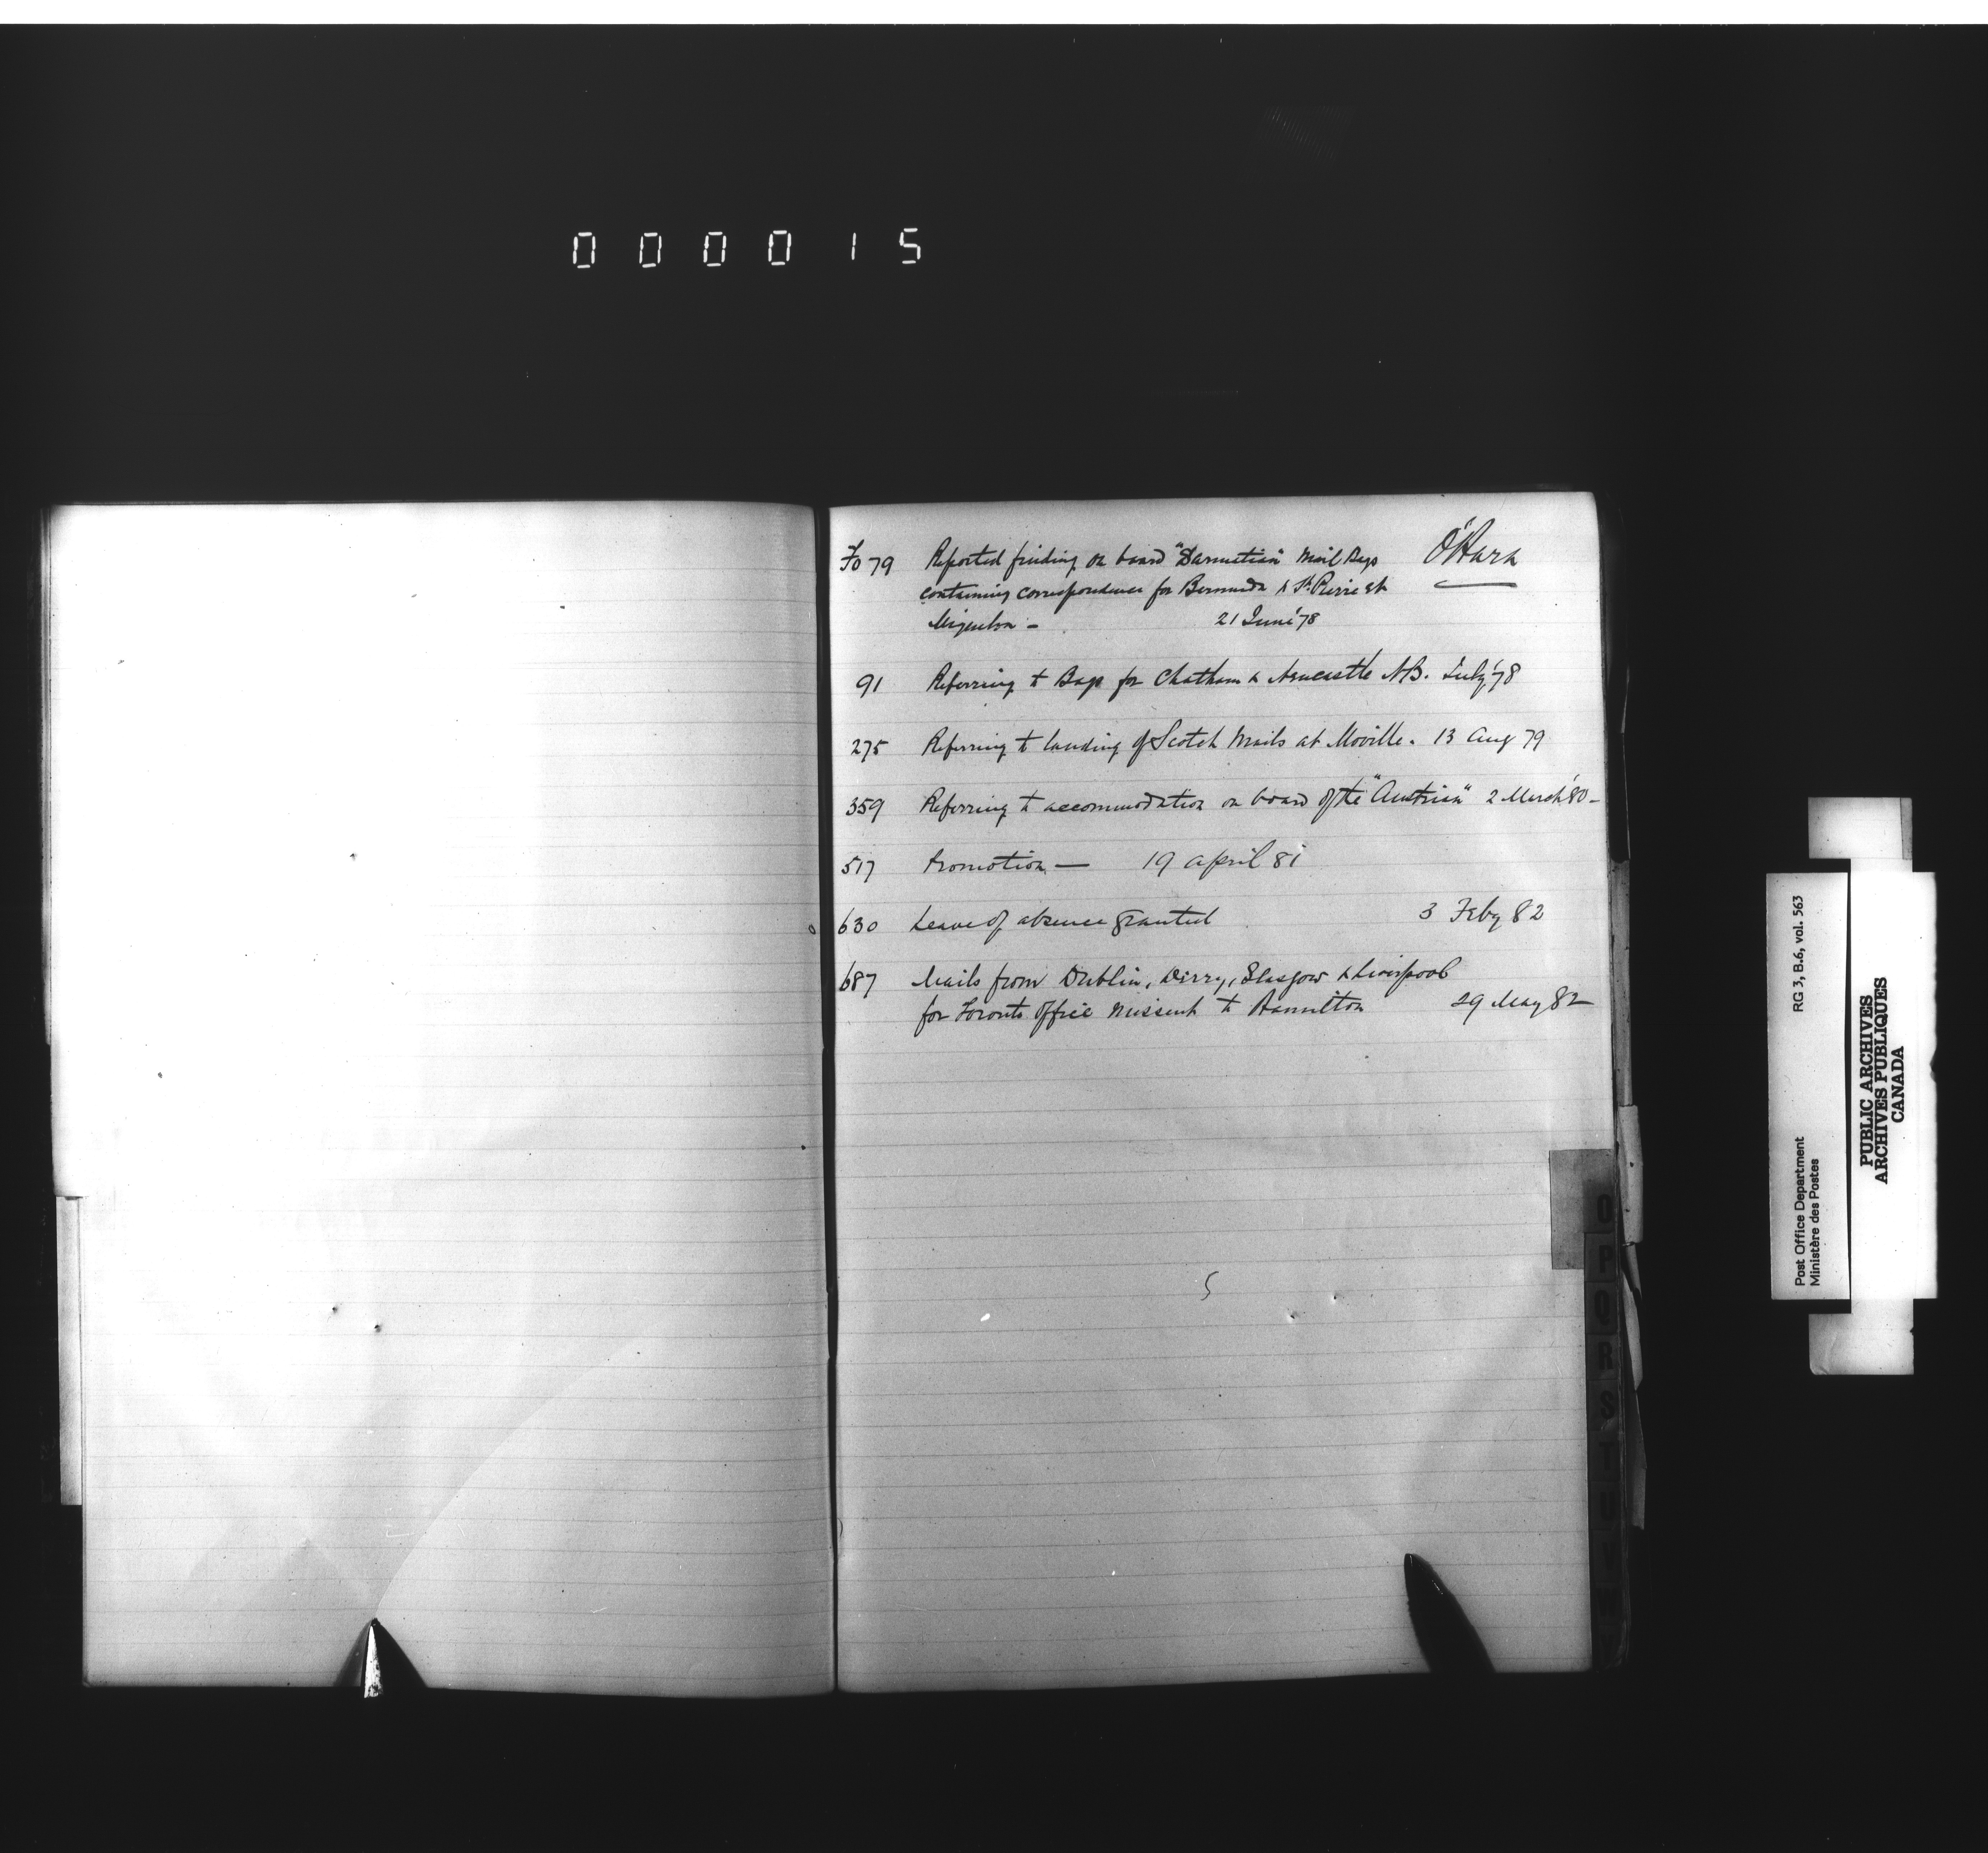 000015
O'Hara
Fo 79 Reported finding on board "Sarmatian" Mail Bags
containing correspondence for Bermuda & St. Pierre et
Miquelon - 21 June '78
91 Referring to Bags for Chatham & Newcastle N.B. July '78
275 Referring to landing of Scotch Mails at Moville. 13 Aug 79
359 Referring to accommodation on board of the "Austrian" 2 March '80 -
517 Promotion — 19 April 81
630 Leave of absence granted 3 Feby 82
687 Mails from Dublin, Derry, Glasgow & Liverpool
for Toronto Office missent to Hamilton 29 May 82
O
P
Q
R
S
T
U
V
W
Post Office Department
Ministère des Postes
RG 3, B.6, vol. 563
PUBLIC ARCHIVES
ARCHIVES PUBLIQUES
CANADA